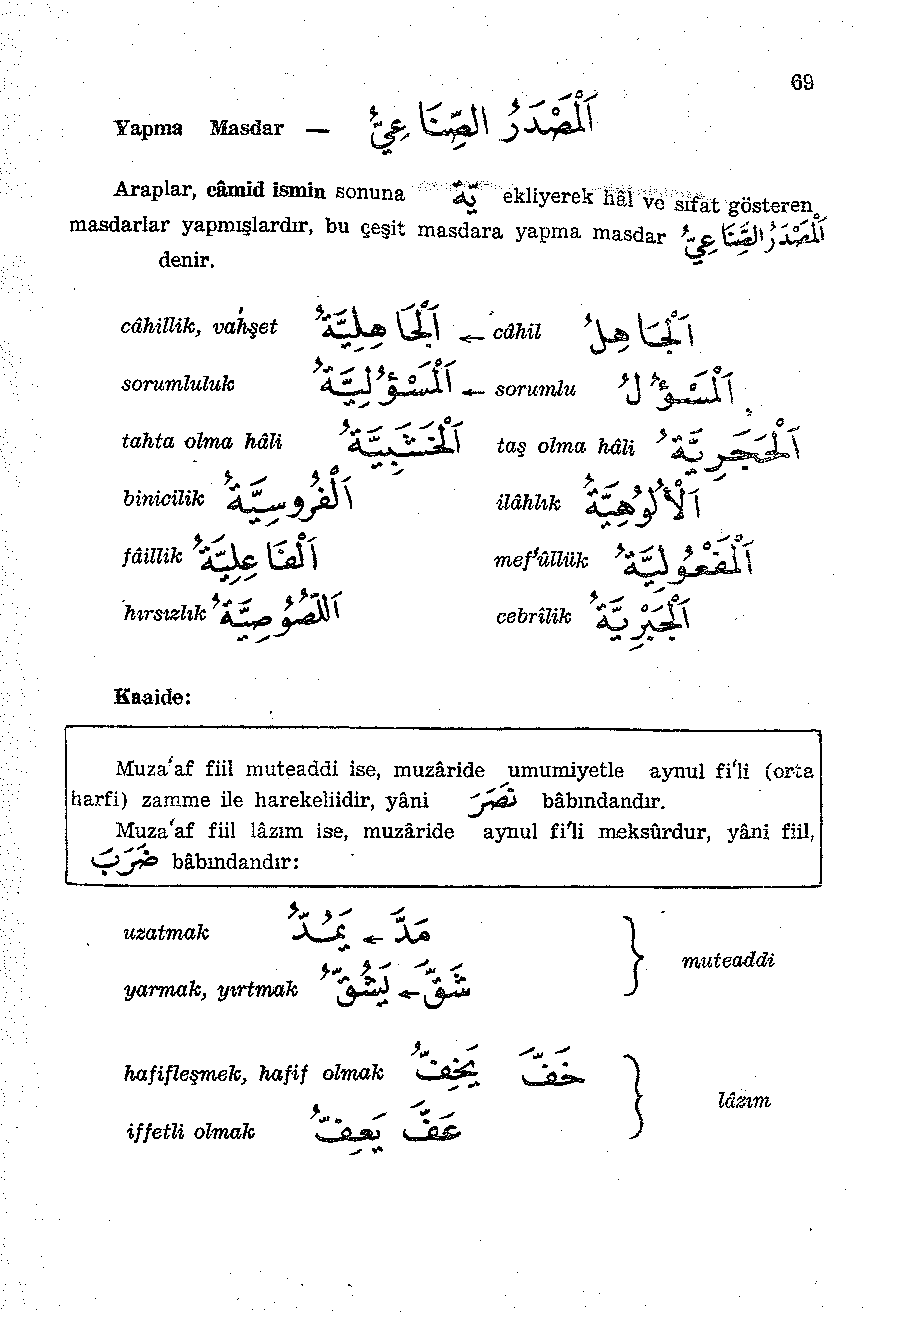 69
Yapma Masdar — اَلْمَصْدَرُ الصِّنَاعِيُّ
Araplar, câmid ismin sonuna يَّةٌ ekliyerek hâl ve sıfat gösteren
masdarlar yapmışlardır, bu çeşit masdara yapma masdar اَلْمَصْدَرُ الصِّنَاعِيُّ
denir.
câhillik, vahşet اَلْجَاهِلِيَّةُ ← câhil اَلْجَاهِلُ
sorumluluk اَلْمَسْؤُلِيَّةُ ← sorumlu اَلْمَسْؤُلُ
tahta olma hâli اَلْخَشَبِيَّةُ taş olma hâli اَلْحَجَرِيَّةُ
binicilik اَلْفُرُوسِيَّةُ ilâhlık اَلْأُلُوهِيَّةُ
fâillik اَلْفَاعِلِيَّةُ mef'ûllük اَلْمَفْعُولِيَّةُ
hırsızlık اَللُّصُوصِيَّةُ cebrîlik اَلْجَبْرِيَّةُ
Kaaide:
Muza'af fiil muteaddi ise, muzâride umumiyetle aynul fi'li (orta
harfi) zamme ile harekeliidir, yâni نَصَرَ bâbındandır.
Muza'af fiil lâzım ise, muzâride aynul fi'li meksûrdur, yâni fiil,
ضَرَبَ bâbındandır:
uzatmak مَدَّ ← يَمُدُّ
muteaddi
yarmak, yırtmak شَقَّ ← يَشُقُّ
hafifleşmek, hafif olmak خَفَّ يَخِفُّ
lâzım
iffetli olmak عَفَّ يَعِفُّ